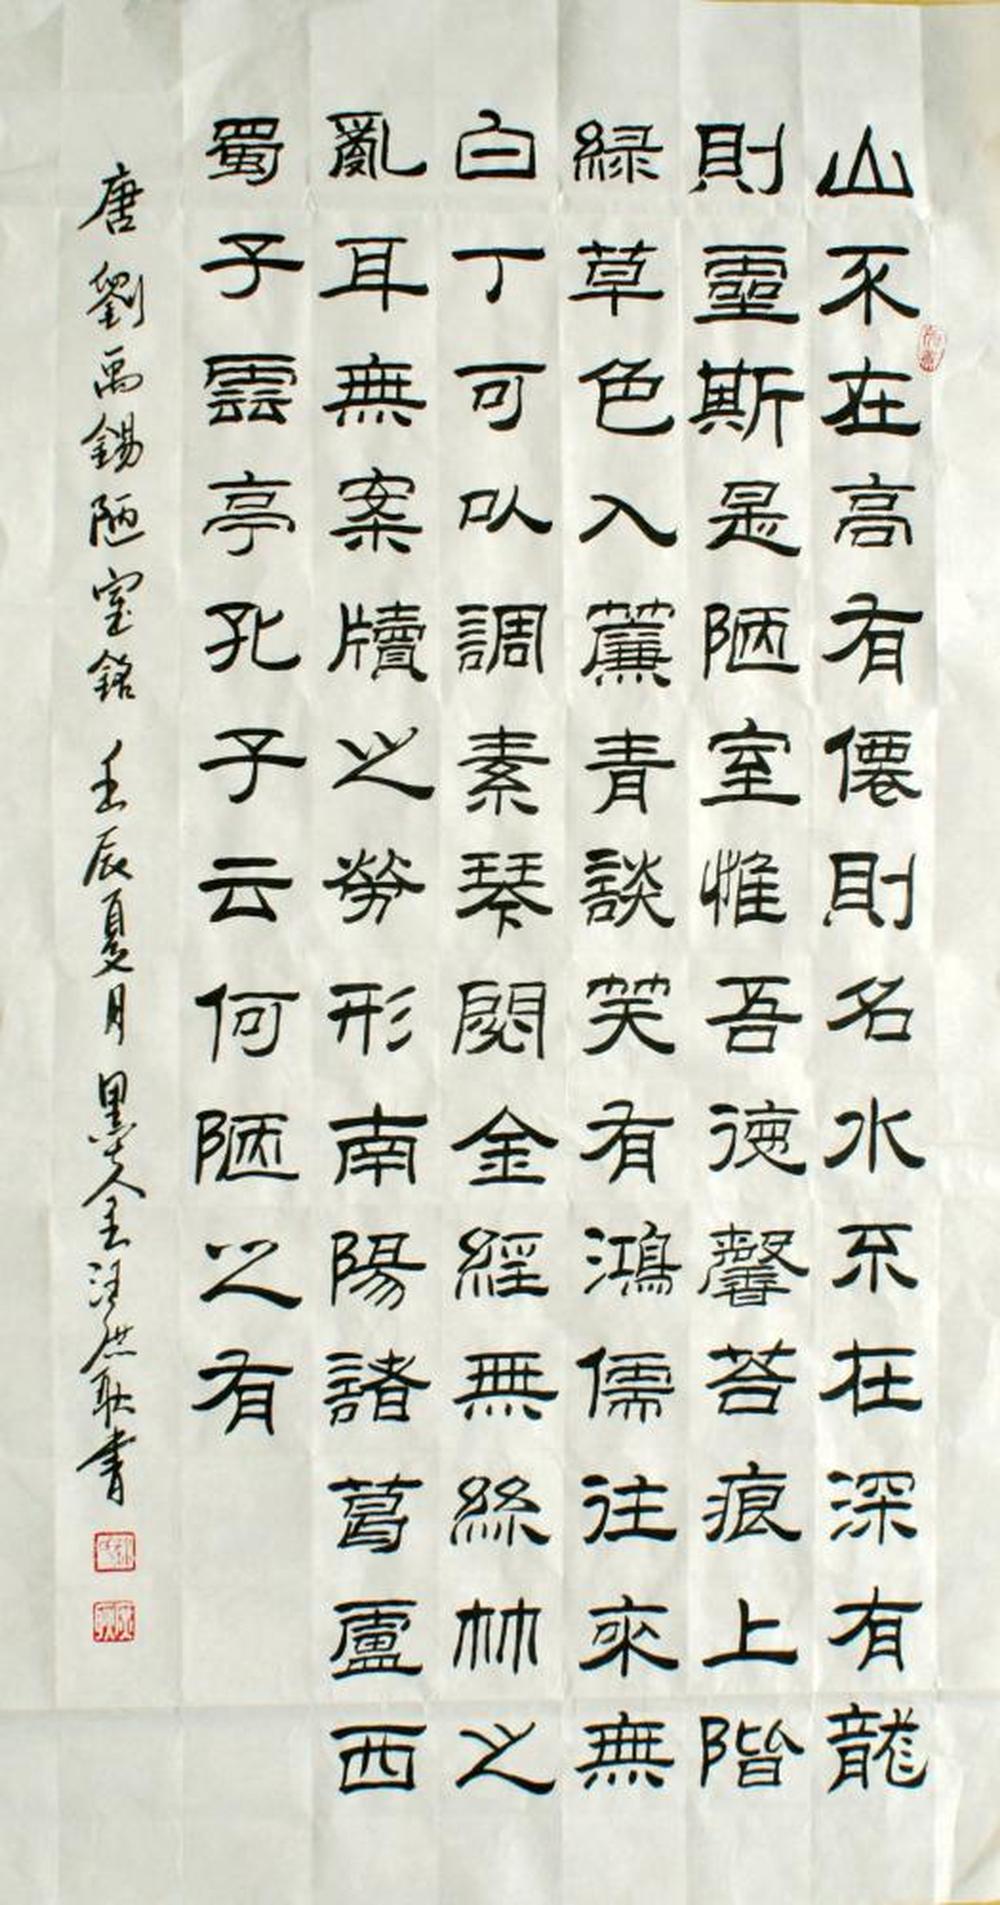 山不在高有僊則名水不在深有龍
則靈斯是陋室惟吾德馨苔痕上階
綠草色入簾青談笑有鴻儒往來無
白丁可以調素琴閱金經無絲竹之
亂耳無案牘之勞形南陽諸葛廬西
蜀子雲亭孔子云何陋之有
唐劉禹錫陋室銘壬辰夏月墨人書